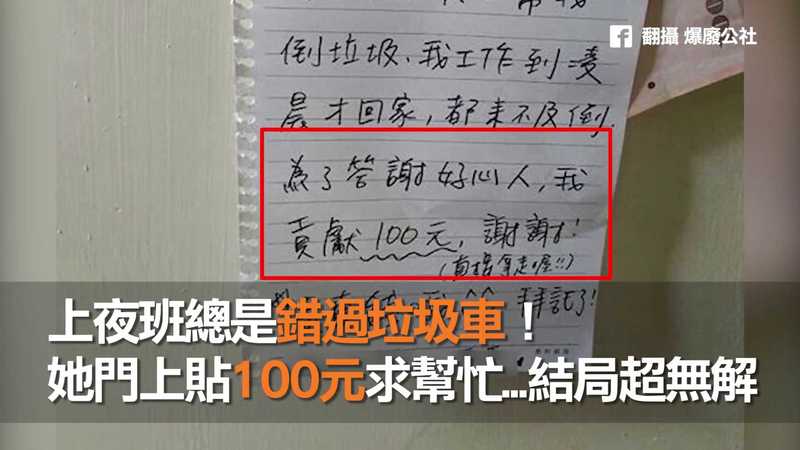 翻攝 爆廢公社
倒垃圾、我工作到凌
晨才回家，都來不及倒.
為了答謝好心人，我
貢獻100元，謝謝!
(直接拿走喔!!)
拜託了!
上夜班總是錯過垃圾車！
她門上貼100元求幫忙...結局超無解